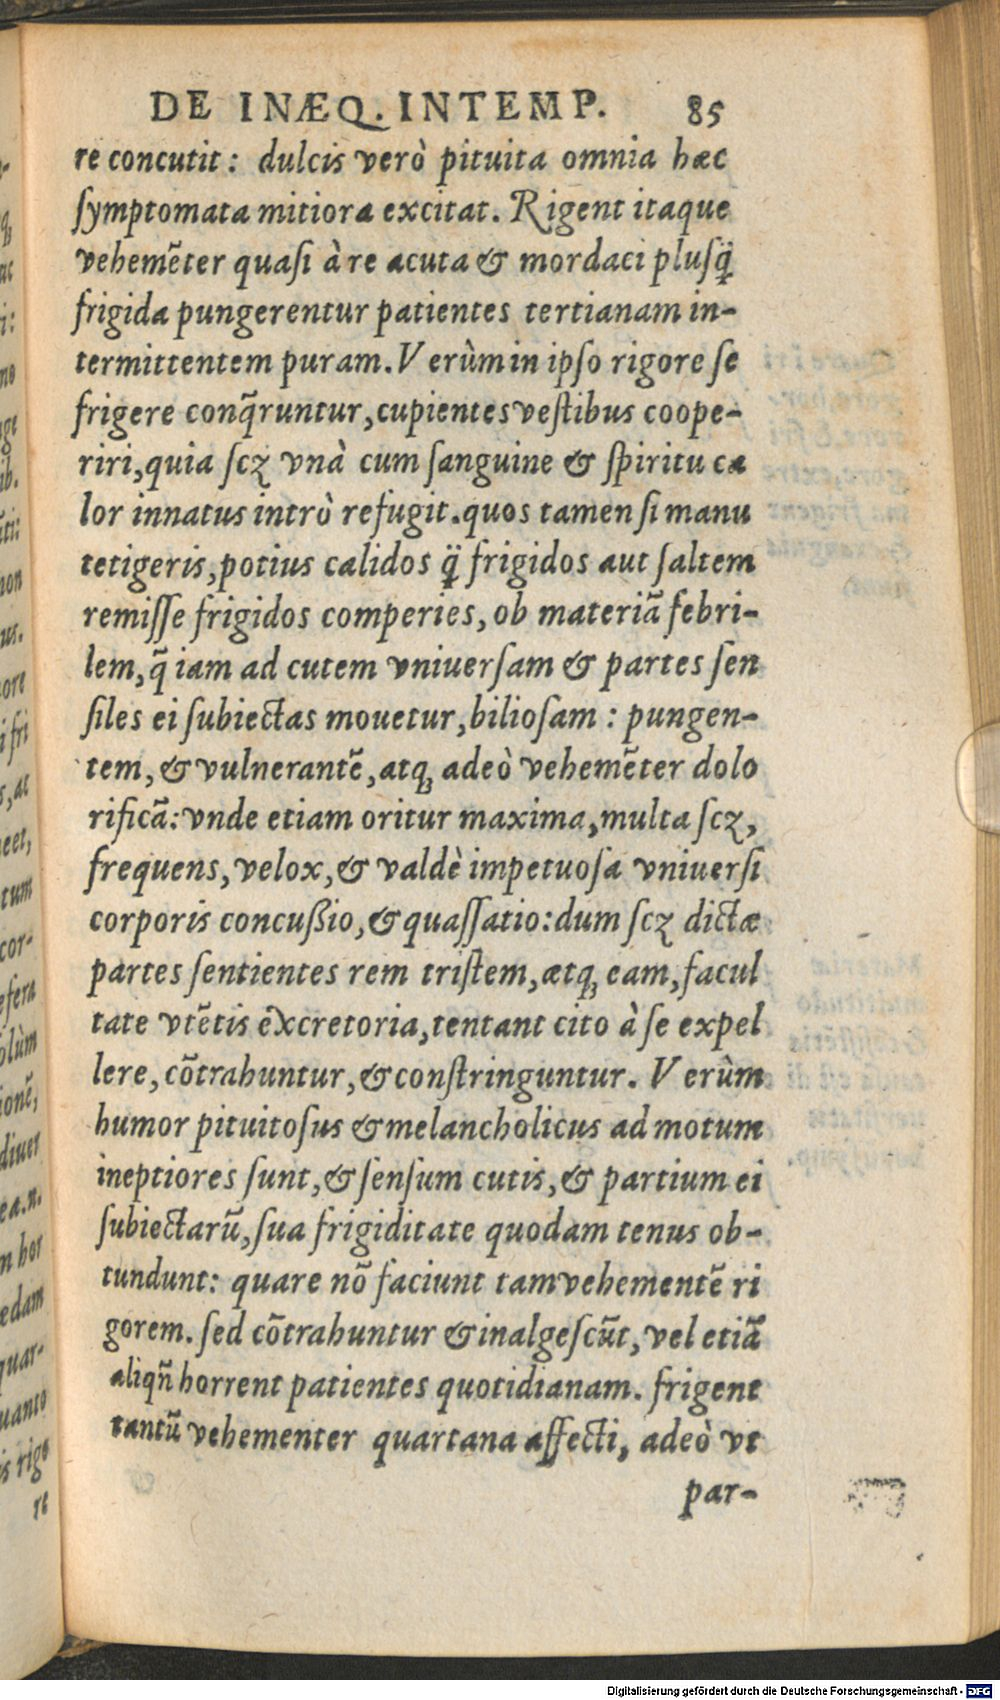 DE INÆQ. INTEMP. 85
re concutit : dulcis verò pituita omnia hæc
ſymptomata mitiora excitat. Rigent itaque
vehemẽter quaſi à re acuta & mordaci pluſq̃
frigida pungerentur patientes tertianam in-
termittentem puram. Verùm in ipſo rigore ſe
frigere conq̃runtur, cupientes veſtibus coope-
riri, quia ſcꝫ vnà cum ſanguine & ſpiritu ca
lor innatus intrò refugit. quos tamen ſi manu
tetigeris, potius calidos q̃ frigidos aut ſaltem
remiſſe frigidos comperies, ob materiã febri-
lem, q̃ iam ad cutem vniuerſam & partes ſen
ſiles ei ſubiectas mouetur, bilioſam : pungen-
tem, & vulnerantẽ, atqꝫ adeò vehemẽter dolo
rificã: vnde etiam oritur maxima, multa ſcꝫ,
frequens, velox, & valdè impetuoſa vniuerſi
corporis concußio, & quaſſatio: dum ſcꝫ dictæ
partes ſentientes rem triſtem, atqꝫ eam, facul
tate vtẽtis excretoria, tentant cito à ſe expel
lere, cõtrahuntur, & conſtringuntur. Verùm
humor pituitoſus & melancholicus ad motum
ineptiores ſunt, & ſenſum cutis, & partium ei
ſubiectarũ, ſua frigiditate quodam tenus ob-
tundunt: quare nõ faciunt tam vehementẽ ri
gorem. ſed cõtrahuntur & inalgeſcũt, vel etiã
aliqñ horrent patientes quotidianam. frigent
tantũ vehementer quartana affecti, adeò vt
par-
Digitalisierung gefördert durch die Deutsche Forschungsgemeinschaft - DFG